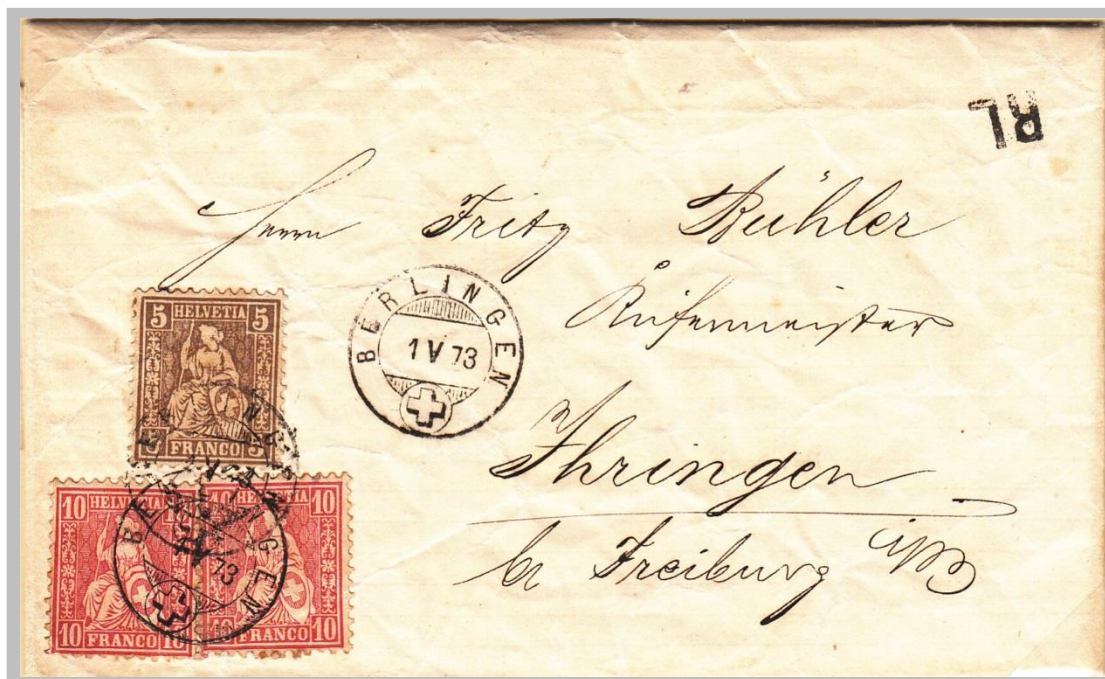 RL
Herrn Fritz Bühler
Küfermeister
Ihringen
b/ Freiburg i/B
BERLINGEN
1 V 73
5 HELVETIA 5
5 FRANCO 5
10 HELVETIA 10
10 FRANCO 10
10 HELVETIA 10
10 FRANCO 10
BERLINGEN
1 V 73